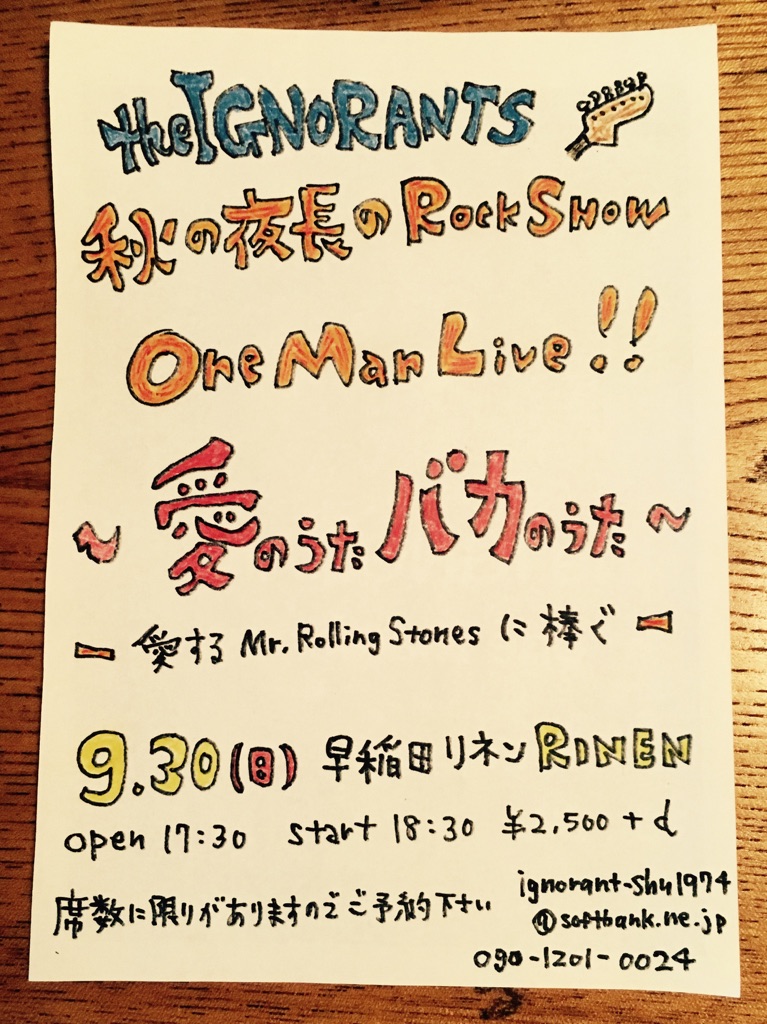 the IGNORANTS
秋の夜長の Rock Show
One Man Live !!
~ 愛のうた バカのうた ~
ー 愛する Mr. Rolling Stones に 棒ぐ ー
9.30(日) 早稲田リネン RINEN
open 17:30 start 18:30 ¥2,500 + d
席数に限りがありますのでご予約下さい
ignorant-shu1974
@softbank.ne.jp
090-1201-0024